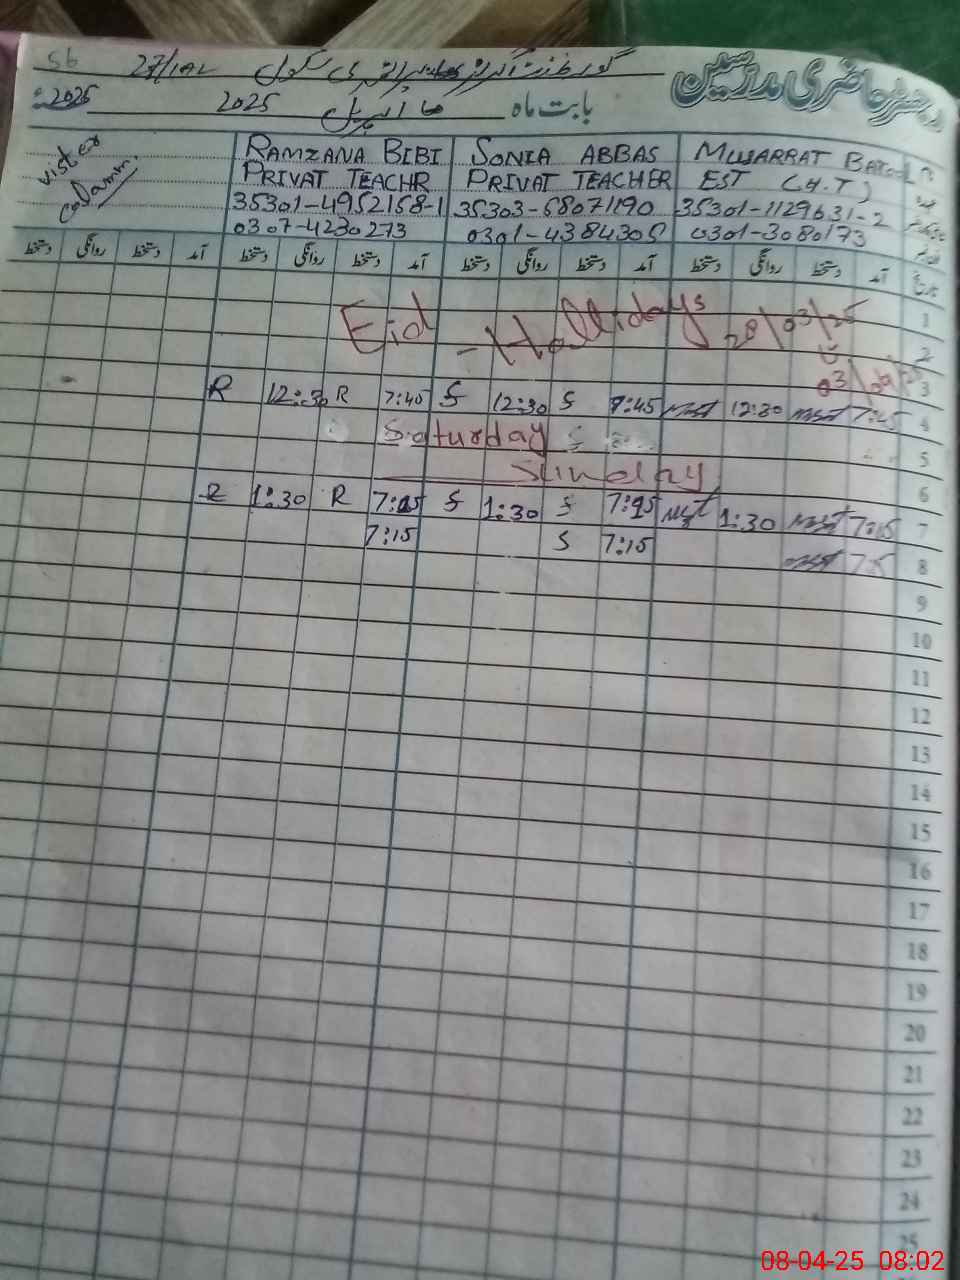 رجسٹر حاضری مدرسین
56 27/1AL گورنمنٹ گرلز پرائمری سکول
بابت ماہ اپریل 2025 2025
RAMZANA BIBI SONIA ABBAS MUSARRAT BATOOL
PRIVAT TEACHR PRIVAT TEACHER EST (H.T)
35301-4952158-1 35303-5807119 0 35301-1129631-2
0307-4230273 0301-4384305 0301-3080173
vister
calamn
آمد دستخط روانگی دستخط آمد دستخط روانگی دستخط آمد دستخط روانگی دستخط آمد دستخط روانگی دستخط تاریخ
1
Eid - Hollidays 28/03/25
2
3
R 12:30 R 7:45 S 12:30 S 7:45 12:30 7:45 4
Saturday S 5
Sunday 6
R 1:30 R 7:15 S 1:30 S 7:15 1:30 7:15 7
7:15 S 7:15 8
9
10
11
12
13
14
15
16
17
18
19
20
21
22
23
24
25
08-04-25 08:02